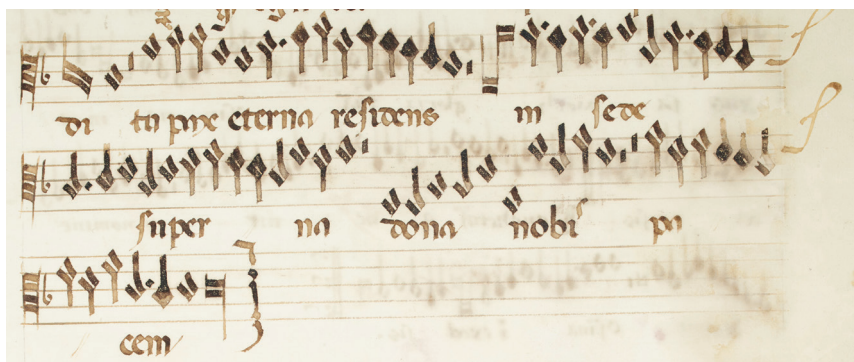 di tu pyxe eterna residens in sede
super na dona nobis pa
cem